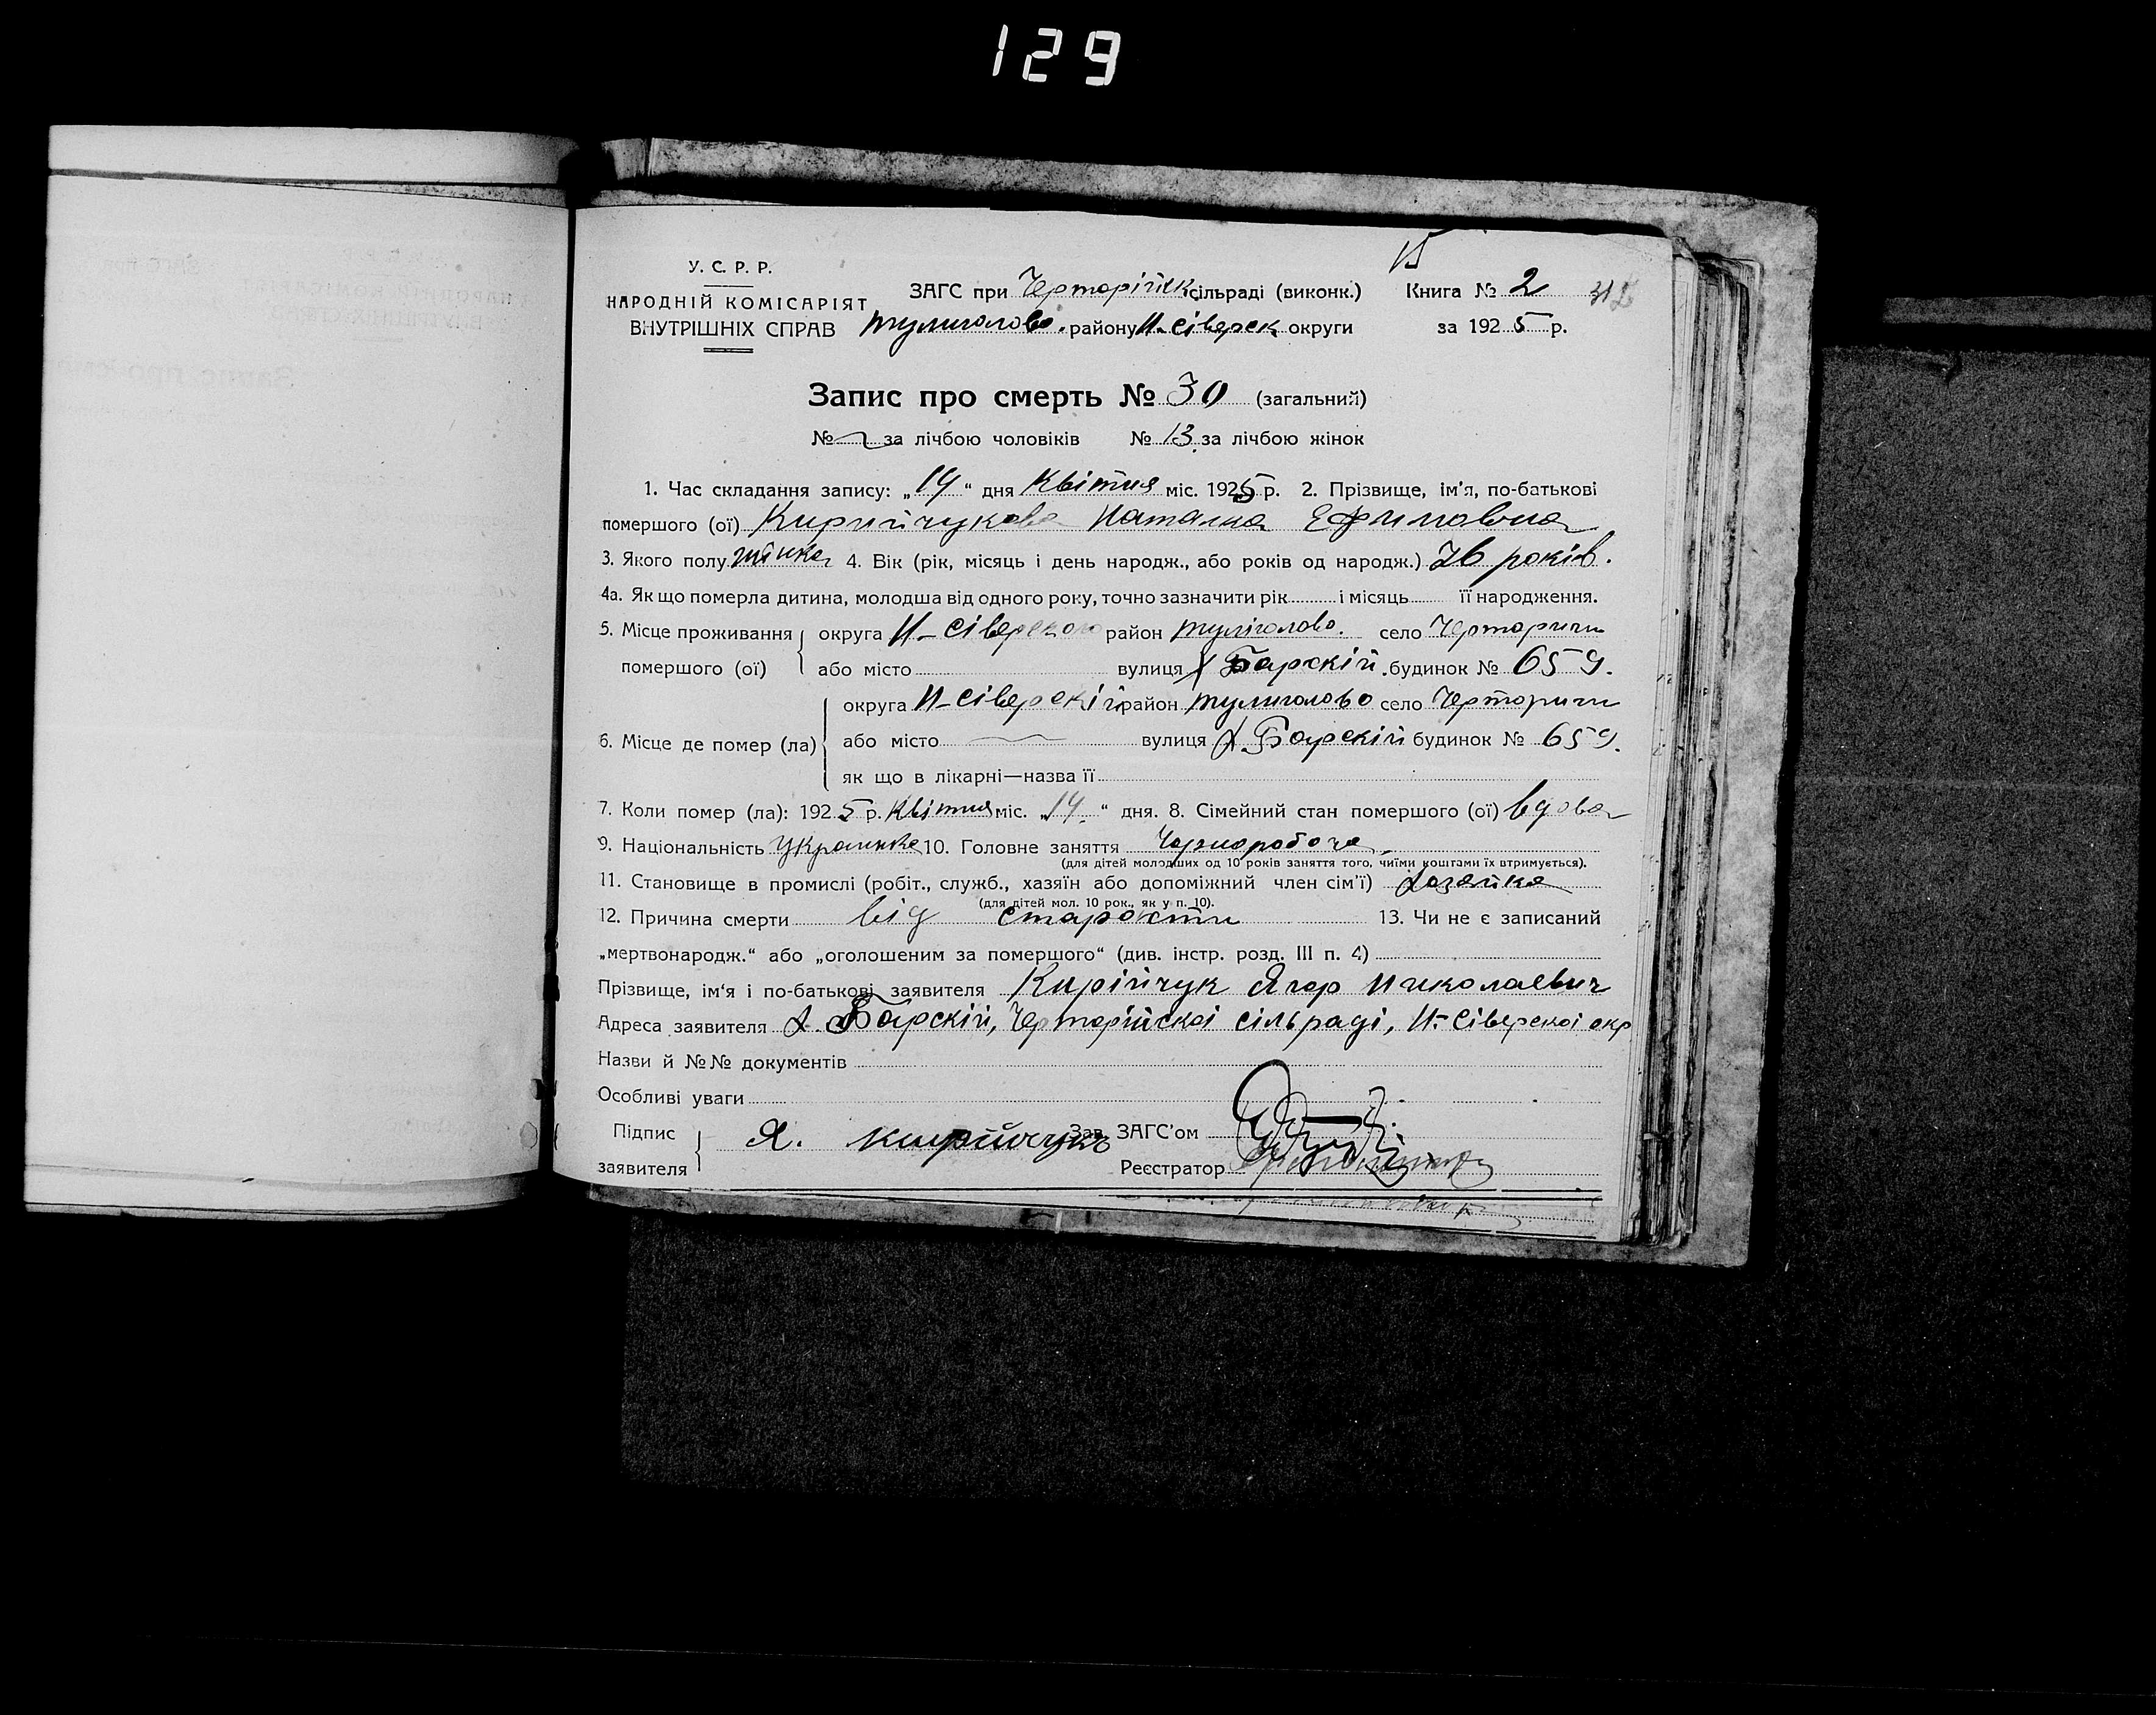 129
15
У. С. Р. Р.
НАРОДНІЙ КОМІСАРІЯТ
ВНУТРІШНІХ СПРАВ
ЗАГС при Черторійск сільраді (виконк.) Книга № 2
тулиголово. району Н-сіверск округи за 1925 р.
Запис про смерть № 30 (загальний)
№ за лічбою чоловіків № 13 за лічбою жінок
1. Час складання запису: „14“ дня Квітня міс. 1925 р. 2. Прізвище, ім'я, по-батькові
помершого (ої) Кирийчукова Наталка Ефимовна
3. Якого полу жінка 4. Вік (рік, місяць і день народж., або років од народж.) 76 років.
4а. Як що померла дитина, молодша від одного року, точно зазначити рік і місяць її народження.
5. Місце проживання помершого (ої) округа Н-Сіверского район туліголово. село Черториги
або місто вулиця х Барскій будинок № 659.
6. Місце де помер (ла) округа Н-Сіверскій район тулиголово село Черториги
або місто вулиця х. Барскій будинок № 659.
як що в лікарні—назва її
7. Коли помер (ла): 1925 р. Квітня міс. „14“ дня. 8. Сімейний стан помершого (ої) вдова
9. Національність Украинка 10. Головне заняття Чорноробоча
(для дітей молодших од 10 років заняття того, чиїми коштами їх втримується).
11. Становище в промислі (робіт., служб., хазяїн або допоміжний член сім'ї) Хазяйка
(для дітей мол. 10 рок., як у п. 10).
12. Причина смерти від старости 13. Чи не є записаний
„мертвонародж.“ або „оголошеним за помершого“ (див. інстр. розд. III п. 4)
Прізвище, ім'я і по-батькові заявителя Кирійчук Ягор Николаевич
Адреса заявителя х. Барскій, Черторійскоі сільраді, Н-Сіверскоі окр
Назви й №№ документів
Особливі уваги
Підпис заявителя Я. Кирійчукъ Зав. ЗАГС'ом
Реєстратор